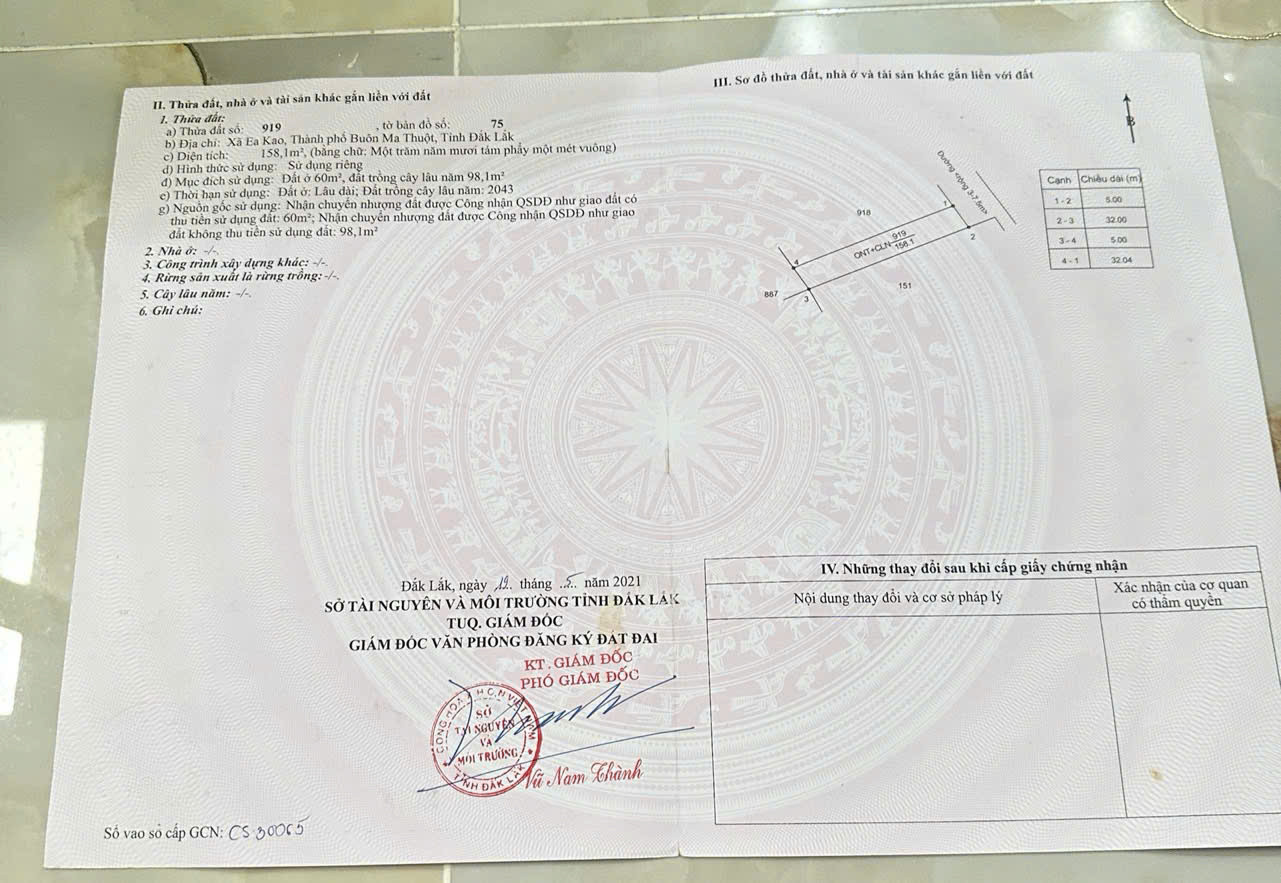 II. Thửa đất, nhà ở và tài sản khác gắn liền với đất
1. Thửa đất:
a) Thửa đất số: 919 , tờ bản đồ số: 75
b) Địa chỉ: Xã Ea Kao, Thành phố Buôn Ma Thuột, Tỉnh Đắk Lắk
c) Diện tích: 158,1m², (bằng chữ: Một trăm năm mươi tám phẩy một mét vuông)
d) Hình thức sử dụng: Sử dụng riêng
đ) Mục đích sử dụng: Đất ở 60m², đất trồng cây lâu năm 98,1m²
e) Thời hạn sử dụng: Đất ở: Lâu dài; Đất trồng cây lâu năm: 2043
g) Nguồn gốc sử dụng: Nhận chuyển nhượng đất được Công nhận QSDĐ như giao đất có
thu tiền sử dụng đất: 60m²; Nhận chuyển nhượng đất được Công nhận QSDĐ như giao
đất không thu tiền sử dụng đất: 98,1m²
2. Nhà ở: -/-.
3. Công trình xây dựng khác: -/-.
4. Rừng sản xuất là rừng trồng: -/-.
5. Cây lâu năm: -/-.
6. Ghi chú:
Đắk Lắk, ngày 19 tháng 5 năm 2021
SỞ TÀI NGUYÊN VÀ MÔI TRƯỜNG TỈNH ĐẮK LẮK
TUQ. GIÁM ĐỐC
GIÁM ĐỐC VĂN PHÒNG ĐĂNG KÝ ĐẤT ĐAI
KT. GIÁM ĐỐC
PHÓ GIÁM ĐỐC
CỘNG HÒA X.H.C.N VIỆT NAM
SỞ
TÀI NGUYÊN
VÀ
MÔI TRƯỜNG
TỈNH ĐẮK LẮK
Vũ Nam Thành
Số vào sổ cấp GCN: CS 30065
III. Sơ đồ thửa đất, nhà ở và tài sản khác gắn liền với đất
B
Đường rộng 3-7.5m>
918
1
2
ONT+CLN 919
158.1
4
3
887
151
Cạnh Chiều dài (m)
1 - 2 5.00
2 - 3 32.00
3 - 4 5.00
4 - 1 32.04
IV. Những thay đổi sau khi cấp giấy chứng nhận
Nội dung thay đổi và cơ sở pháp lý
Xác nhận của cơ quan
có thẩm quyền